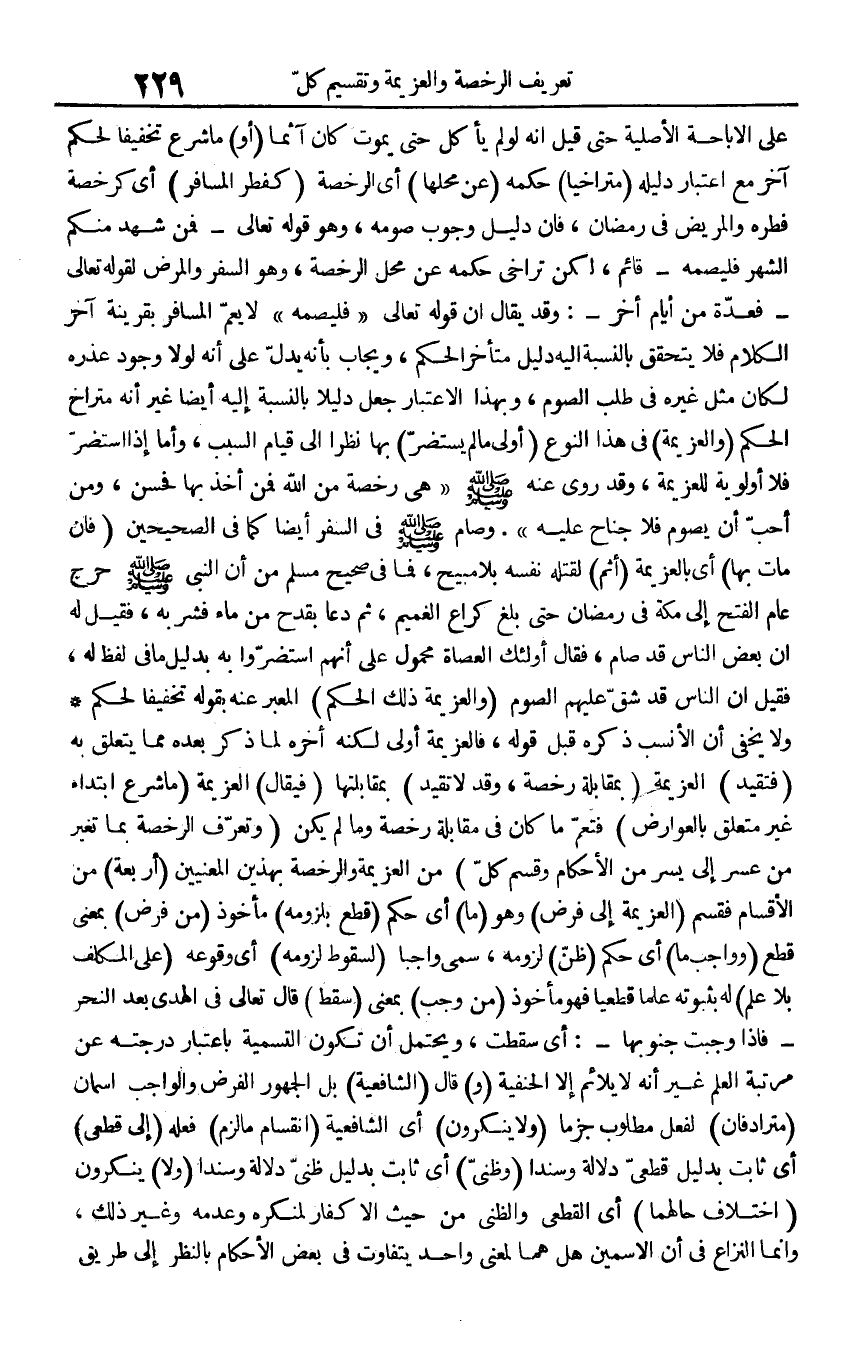 تعريف الرخصة والعزيمة وتقسيم كلّ ٢٢٩
على الاباحة الأصلية حتى قيل انه لولم يأكل حتى يموت كان آثما (أو) ماشرع تخفيفا لحكم
آخر مع اعتبار دليله (متراخيا) حكمه (عن محلها) أى الرخصة (كفطر المسافر) أى كرخصة
فطره والمريض فى رمضان ، فان دليل وجوب صومه ، وهو قوله تعالى - فمن شهد منكم
الشهر فليصمه - قائم ، لكن تراخى حكمه عن محل الرخصة ، وهو السفر والمرض لقوله تعالى
- فعدّة من أيام أخر - : وقد يقال ان قوله تعالى « فليصمه » لايعمّ المسافر بقرينة آخر
الكلام فلا يتحقق بالنسبة اليه دليل متأخر الحكم ، ويجاب بأنه يدلّ على أنه لولا وجود عذره
لكان مثل غيره فى طلب الصوم ، وبهذا الاعتبار جعل دليلا بالنسبة إليه أيضا غير أنه متراخ
الحكم (والعزيمة) فى هذا النوع (أولى مالم يستضرّ) بها نظرا الى قيام السبب ، وأما إذا استضرّ
فلا أولوية للعزيمة ، وقد روى عنه ﷺ « هى رخصة من الله فمن أخذ بها فحسن ، ومن
أحبّ أن يصوم فلا جناح عليه » . وصام ﷺ فى السفر أيضا كما فى الصحيحين (فان
مات بها) أى بالعزيمة (أثم) لقتله نفسه بلامبيح ، فما فى صحيح مسلم من أن النبى ﷺ خرج
عام الفتح إلى مكة فى رمضان حتى بلغ كراع الغميم ، ثم دعا بقدح من ماء فشربه ، فقيل له
ان بعض الناس قد صام ، فقال أولئك العصاة محمول على أنهم استضرّوا به بدليل مافى لفظ له ،
فقيل ان الناس قد شقّ عليهم الصوم (والعزيمة ذلك الحكم) المعبر عنه بقوله تخفيفا لحكم *
ولا يخفى أن الأنسب ذكره قبل قوله ، فالعزيمة أولى لكنه أخره لما ذكر بعده مما يتعلق به
(فتقيد) العزيمة (بمقابلة رخصة ، وقد لاتقيد) بمقابلتها (فيقال) العزيمة (ماشرع ابتداء
غير متعلق بالعوارض) فتعمّ ما كان فى مقابلة رخصة وما لم يكن (وتعرّف الرخصة بما تغير
من عسر إلى يسر من الأحكام وقسم كلّ) من العزيمة والرخصة بهذين المعنيين (أربعة) من
الأقسام فقسم (العزيمة إلى فرض) وهو (ما) أى حكم (قطع بلزومه) مأخوذ (من فرض) بمعنى
قطع (وواجب ما) أى حكم (ظنّ) لزومه ، سمى واجبا (لسقوط لزومه) أى وقوعه (على المكلف
بلا علم) له بثبوته علما قطعيا فهو مأخوذ (من وجب) بمعنى (سقط) قال تعالى فى الهدى بعد النحر
- فاذا وجبت جنوبها - : أى سقطت ، ويحتمل أن تكون التسمية باعتبار درجته عن
مرتبة العلم غير أنه لايلائم إلا الحنفية (و) قال (الشافعية) بل الجهور الفرض والواجب اسمان
(مترادفان) لفعل مطلوب جزما (ولاينكرون) أى الشافعية (انقسام مالزم) فعله (إلى قطعى)
أى ثابت بدليل قطعىّ دلالة وسندا (وظنىّ) أى ثابت بدليل ظنىّ دلالة وسندا (ولا) ينكرون
(اختلاف حالهما) أى القطعى والظنى من حيث الاكفار لمنكره وعدمه وغير ذلك ،
وانما النزاع فى أن الاسمين هل هما لمعنى واحد يتفاوت فى بعض الأحكام بالنظر إلى طريق